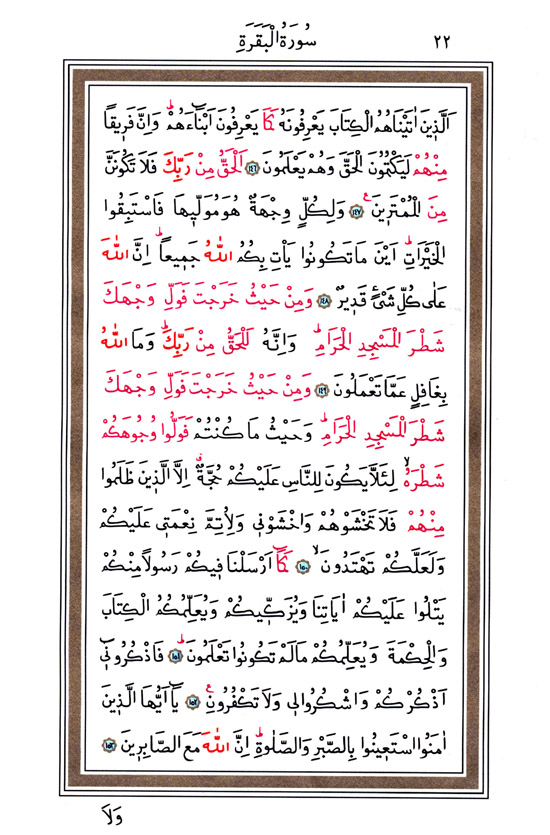 سُورَةُ الْبَقَرَةِ ٢٢
اَلَّذ۪ينَ اٰتَيْنَاهُمُ الْكِتَابَ يَعْرِفُونَهُ كَمَا يَعْرِفُونَ اَبْنَٓاءَهُمْۜ وَاِنَّ فَر۪يقًا
مِنْهُمْ لَيَكْتُمُونَ الْحَقَّ وَهُمْ يَعْلَمُونَ ﴿١٤٦﴾ اَلْحَقُّ مِنْ رَبِّكَ فَلَا تَكُونَنَّ
مِنَ الْمُمْتَر۪ينَ۟ ﴿١٤٧﴾ وَلِكُلٍّ وِجْهَةٌ هُوَ مُوَلّ۪يهَا فَاسْتَبِقُوا
الْخَيْرَاتِۜ اَيْنَ مَا تَكُونُوا يَاْتِ بِكُمُ اللّٰهُ جَم۪يعًاۜ اِنَّ اللّٰهَ
عَلٰى كُلِّ شَيْءٍ قَد۪يرٌ ﴿١٤٨﴾ وَمِنْ حَيْثُ خَرَجْتَ فَوَلِّ وَجْهَكَ
شَطْرَ الْمَسْجِدِ الْحَرَامِۜ وَاِنَّهُ لَلْحَقُّ مِنْ رَبِّكَۜ وَمَا اللّٰهُ
بِغَافِلٍ عَمَّا تَعْمَلُونَ ﴿١٤٩﴾ وَمِنْ حَيْثُ خَرَجْتَ فَوَلِّ وَجْهَكَ
شَطْرَ الْمَسْجِدِ الْحَرَامِۜ وَحَيْثُ مَا كُنْتُمْ فَوَلُّوا وُجُوهَكُمْ
شَطْرَهُۙ لِئَلَّا يَكُونَ لِلنَّاسِ عَلَيْكُمْ حُجَّةٌۗ اِلَّا الَّذ۪ينَ ظَلَمُوا
مِنْهُمْ فَلَا تَخْشَوْهُمْ وَاخْشَوْن۪ي وَلِاُتِمَّ نِعْمَت۪ي عَلَيْكُمْ
وَلَعَلَّكُمْ تَهْتَدُونَۙ ﴿١٥٠﴾ كَمَٓا اَرْسَلْنَا ف۪يكُمْ رَسُولًا مِنْكُمْ
يَتْلُوا عَلَيْكُمْ اٰيَاتِنَا وَيُزَكّ۪يكُمْ وَيُعَلِّمُكُمُ الْكِتَابَ
وَالْحِكْمَةَ وَيُعَلِّمُكُمْ مَا لَمْ تَكُونُوا تَعْلَمُونَۜ ﴿١٥١﴾ فَاذْكُرُون۪ٓي
اَذْكُرْكُمْ وَاشْكُرُوا ل۪ي وَلَا تَكْفُرُونِ۟ ﴿١٥٢﴾ يَٓا اَيُّهَا الَّذ۪ينَ
اٰمَنُوا اسْتَع۪ينُوا بِالصَّبْرِ وَالصَّلٰوةِۜ اِنَّ اللّٰهَ مَعَ الصَّابِر۪ينَ ﴿١٥٣﴾
وَلَا